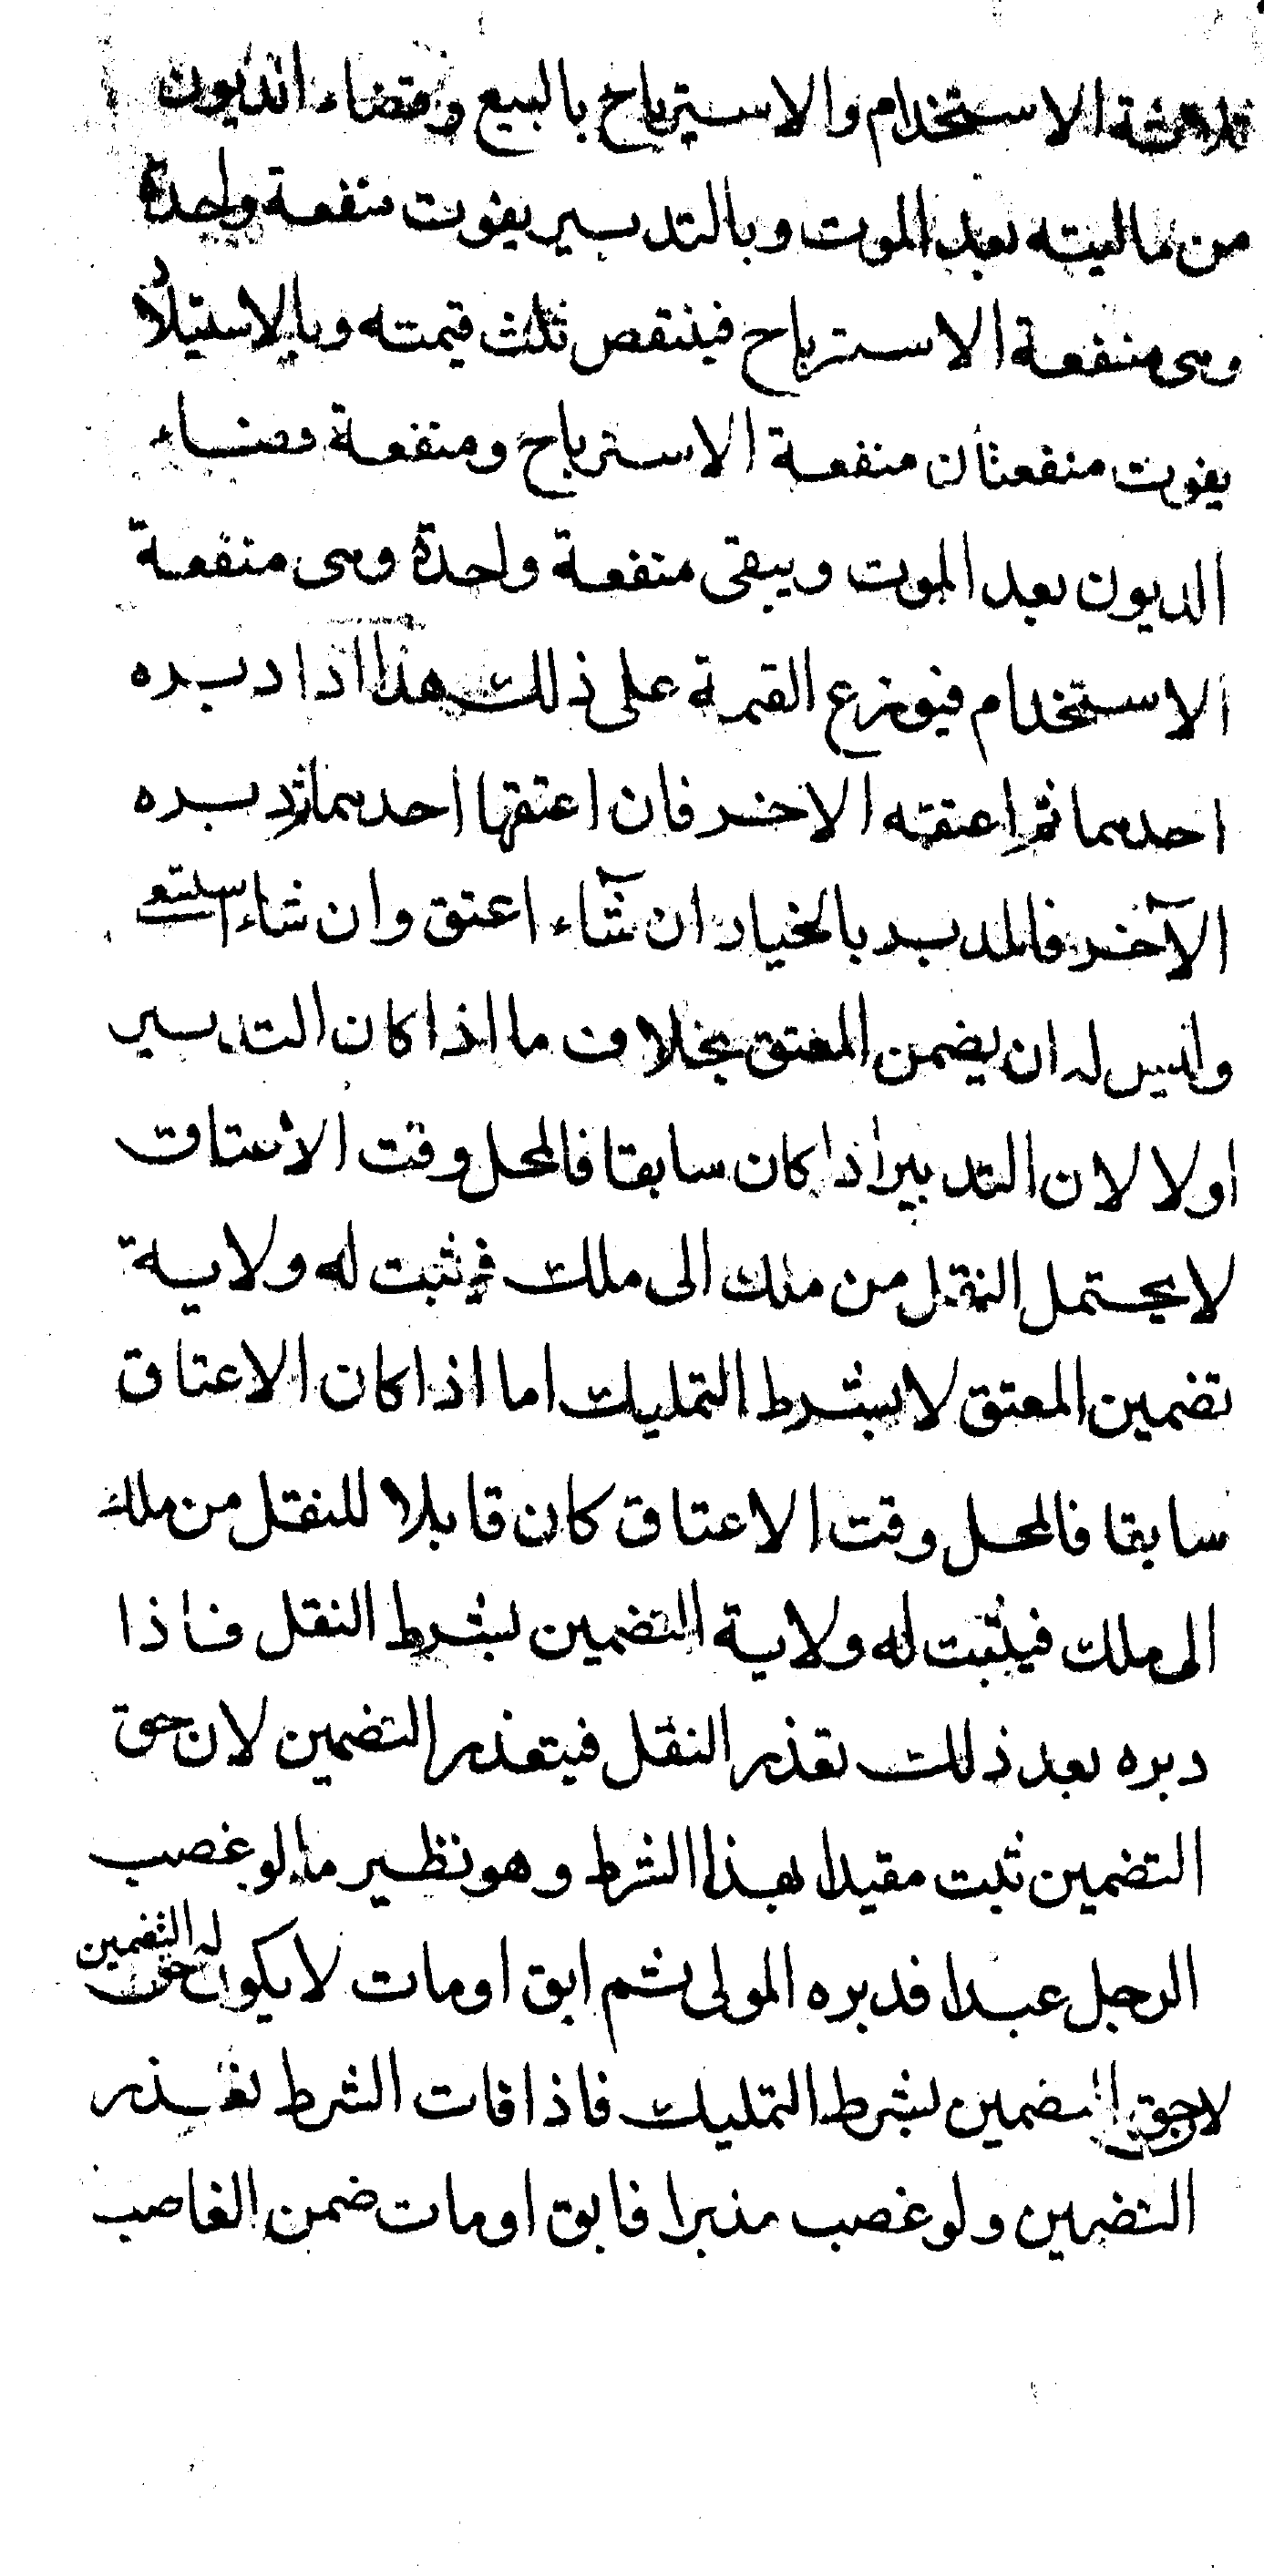 ثلاثة الاستخدام والاسترباح بالبيع وقضاء الديون
من ماليته بعد الموت وبالتدبير يفوت منفعة واحدة
وهي منفعة الاسترباح فينتقص ثلث قيمته وبالاستيلاد
يفوت منفعتان منفعة الاسترباح ومنفعة قضاء
الديون بعد الموت ويبقى منفعة واحدة وهي منفعة
الاستخدام فيوزع القيمة على ذلك هذا اذا دبره
احدهما ثم اعتقه الاخر فان اعتقها احدهما ثم دبره
الآخر فالمدبر بالخيار ان شآء اعتق وان شاء استسعى
وليس له ان يضمن المعتق بخلاف ما اذا كان التدبير
اولا لان التدبير اذا كان سابقا فالمحل وقت الاعتاق
لا يحتمل النقل من ملك الى ملك فيثبت له ولاية
تضمين المعتق لا بشرط التمليك اما اذا كان الاعتاق
سابقا فالمحل وقت الاعتاق كان قابلا للنقل من ملك
الى ملك فيثبت له ولاية التضمين بشرط النقل فاذا
دبره بعد ذلك تعذر النقل فيتعذر التضمين لان حق
التضمين ثبت مقيدا بهذا الشرط وهو نظير ما لو غصب
الرجل عبدا فدبره المولى ثم ابق او مات لا يكون له حق التضمين
لان حق التضمين بشرط التمليك فاذا فات الشرط تعذر
التضمين ولو غصب مدبرا فابق او مات ضمن الغاصب